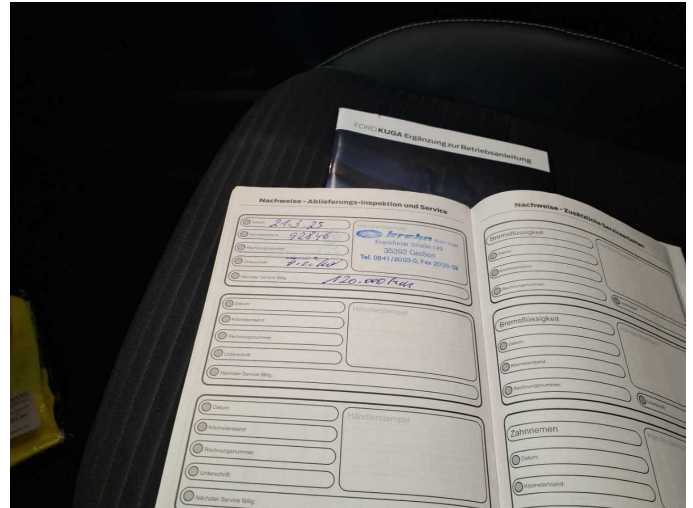 FORD KUGA Ergänzung zur Betriebsanleitung
Nachweise - Ablieferungs-Inspektion und Service
Datum: 21.3.25
Kilometerstand: 92846
Rechnungsnummer:
Unterschrift:
Nächster Service fällig: 120.000 km
Ford
Frankfurter Straße
35392 Gießen
Tel. 0641/2003-0, Fax 2003-32
Datum:
Kilometerstand:
Rechnungsnummer:
Unterschrift:
Nächster Service fällig:
Händlerstempel
Datum:
Kilometerstand:
Rechnungsnummer:
Unterschrift:
Nächster Service fällig:
Händlerstempel
Nachweise - Zusätzliche Servicearbeiten
Bremsflüssigkeit
Datum:
Kilometerstand:
Rechnungsnummer:
Bremsflüssigkeit
Datum:
Kilometerstand:
Rechnungsnummer:
Zahnriemen
Datum:
Kilometerstand: